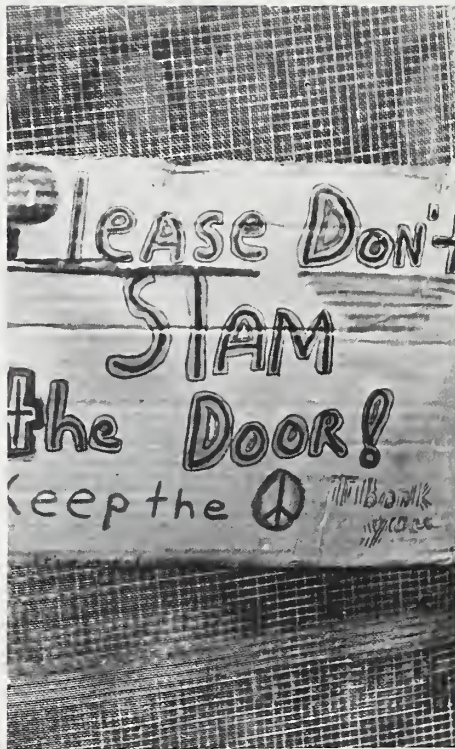 Please Don't
STAM
the DOOR!
Keep the ☮ Thank you